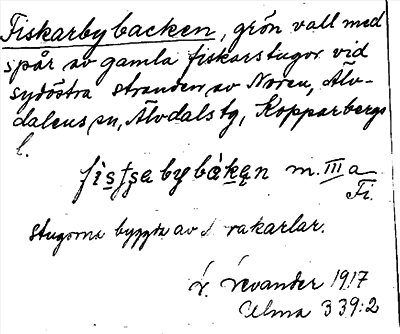 Fiskarbybacken, grön vall med
spår av gamla fiskarstugor vid
sydöstra stranden av Noren, Älv-
dalens sn, Älvdals tg, Kopparbergs
l.
m. III a
Fi.
stugorna byggda av rakarlar.
Levander 1917
Ulma 339:2